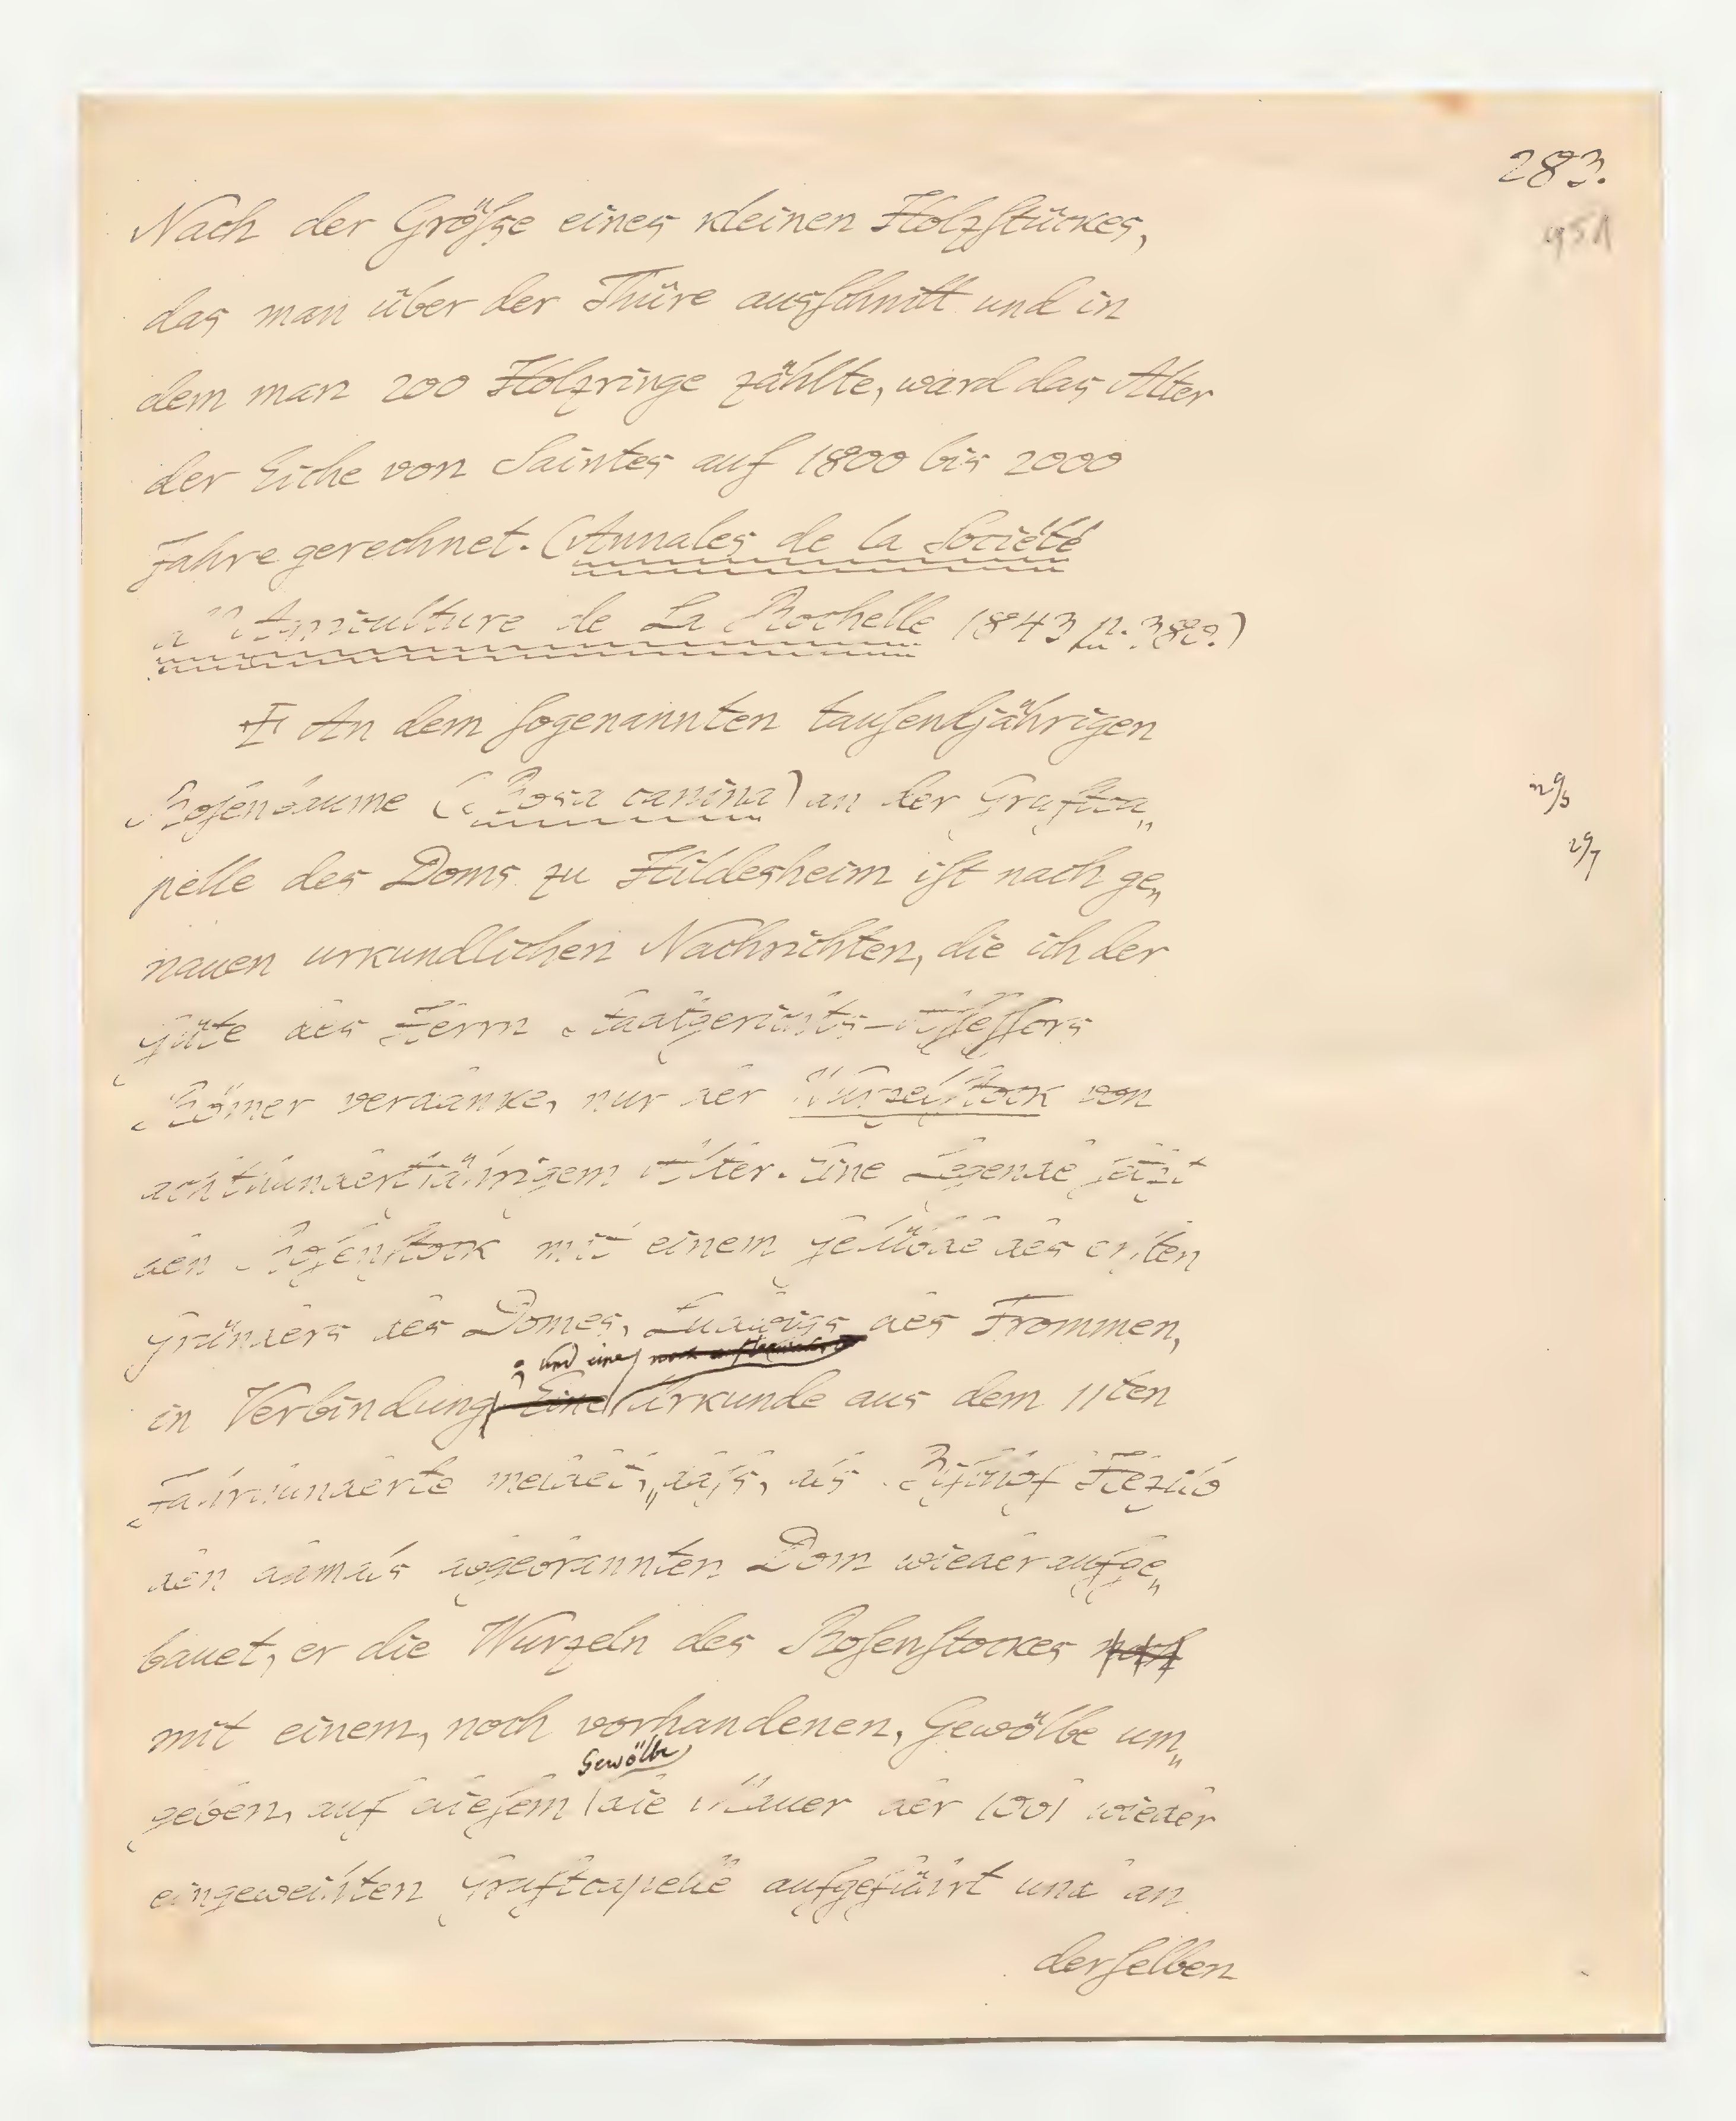 283.
951
Nach der Größe eines kleinen Holzstückes,
das man über der Thüre ausschnitt und in
dem man 200 Holzringe zählte, ward das Alter
der Eiche von Saintes auf 1800 bis 2000
Jahre gerechnet. (Annales de la Société
d'Agriculture de La Rochelle 1843 p. 380.)
An dem sogenannten tausendjährigen
Rosenbaume (Rosa canina) an der Gruftca„
pelle des Doms zu Hildesheim ist nach ge„
nauen urkundlichen Nachrichten, die ich der
Güte des Herrn Stadtgerichts-Assessors
Römer verdanke, nur der Wurzelstock von
achthundertjährigem Alter. Eine Legende setzt
den Rosenstock mit einem Gelübde des ersten
Gründers des Domes, Ludwigs des Frommen,
; und eine noch aufbewahrte
in Verbindung Eine Urkunde aus dem 11ten
Jahrhunderte meldet, „daß, als Bischof Hezilo
den damals abgebrannten Dom wieder aufge„
bauet, er die Wurzeln des Rosenstockes noch
mit einem, noch vorhandenen, Gewölbe um„
Gewölbe
geben, auf diesem die Mauer der 1061 wieder
eingeweihten Gruftcapelle aufgeführt und an
derselben